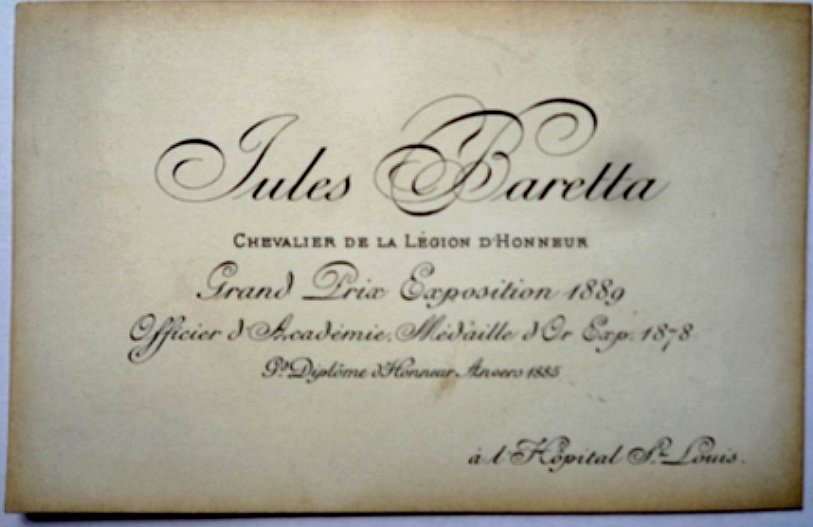 Jules Baretta
CHEVALIER DE LA LÉGION D'HONNEUR
Grand Prix Exposition 1889
Officier d'Académie, Médaille d'Or Exp. 1878
Gd Diplôme d'Honneur Anvers 1885
à l'Hôpital St Louis.